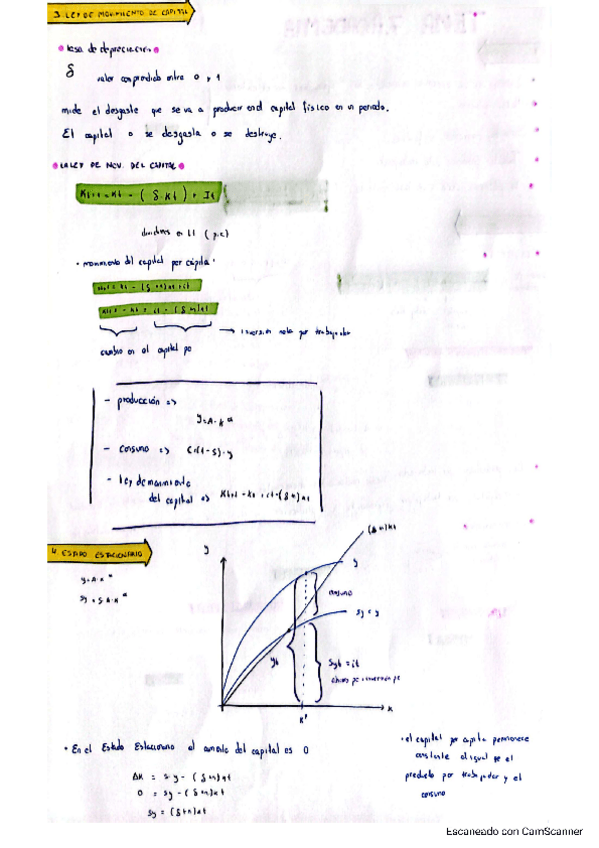 3 LEY DE MOVIMIENTO DE CAPITAL
tasa de depreciacion
δ valor comprendido entre 0 y 1
mide el desgaste que se va a producir en el capital físico en un periodo.
El capital o se desgasta o se destruye.
LA LEY DE MOV. DEL CAPITAL
Kt+1 = Kt - (δ·Kt) + It
dividimos en Lt (p.c)
· movimiento del capital per cápita ·
→ inversion neta por trabajador
cambio en el capital pc
- producción =>
y=A·K^α
- consumo => C=(1-s)·y
- ley de movimiento
del capital =>
4 ESTADO ESTACIONARIO
y=A·K^α
sy = s·A·K^α
y
(δ+n)kt
y
consumo
yt
syt = it
ahorro pc = inversion pc
K*
K
· En el Estado Estacionario el aumento del capital es 0
ΔK = sy - (δ+n)kt
0 = sy - (δ+n)kt
sy = (δ+n)kt
· el capital per capita permanece
constante al igual que el
producto por trabajador y el
consumo
Escaneado con CamScanner